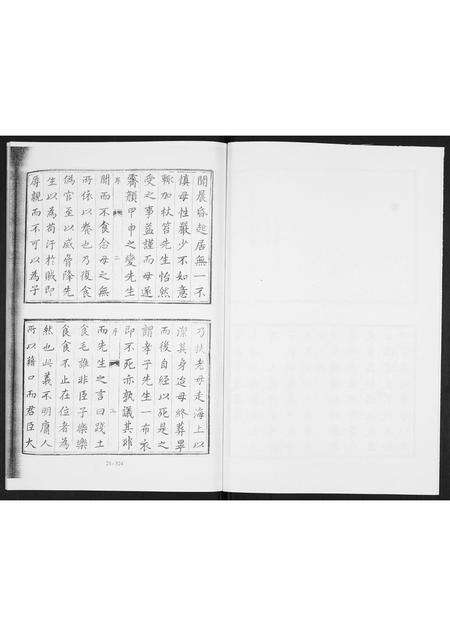 間晨昏起居無一不
慎母性嚴少不如意
輒加杖笞先生怡然
受之事益謹而母遂
霽顏甲申之變先生
序 二
聞而不食念母之無
所依以養也乃復食
偽官至以威脅降先
生以為苟汙於賊即
辱親而不可以為子
乃扶老母走海上以
潔其身迨母終葬畢
而後自經以死是之
謂孝子先生一布衣
即不死亦孰議其非
序
而先生之言曰踐土
食毛誰非臣子樂樂
食食不止在位者為
然也此義不明庸人
所以藉口而君臣大
21-324